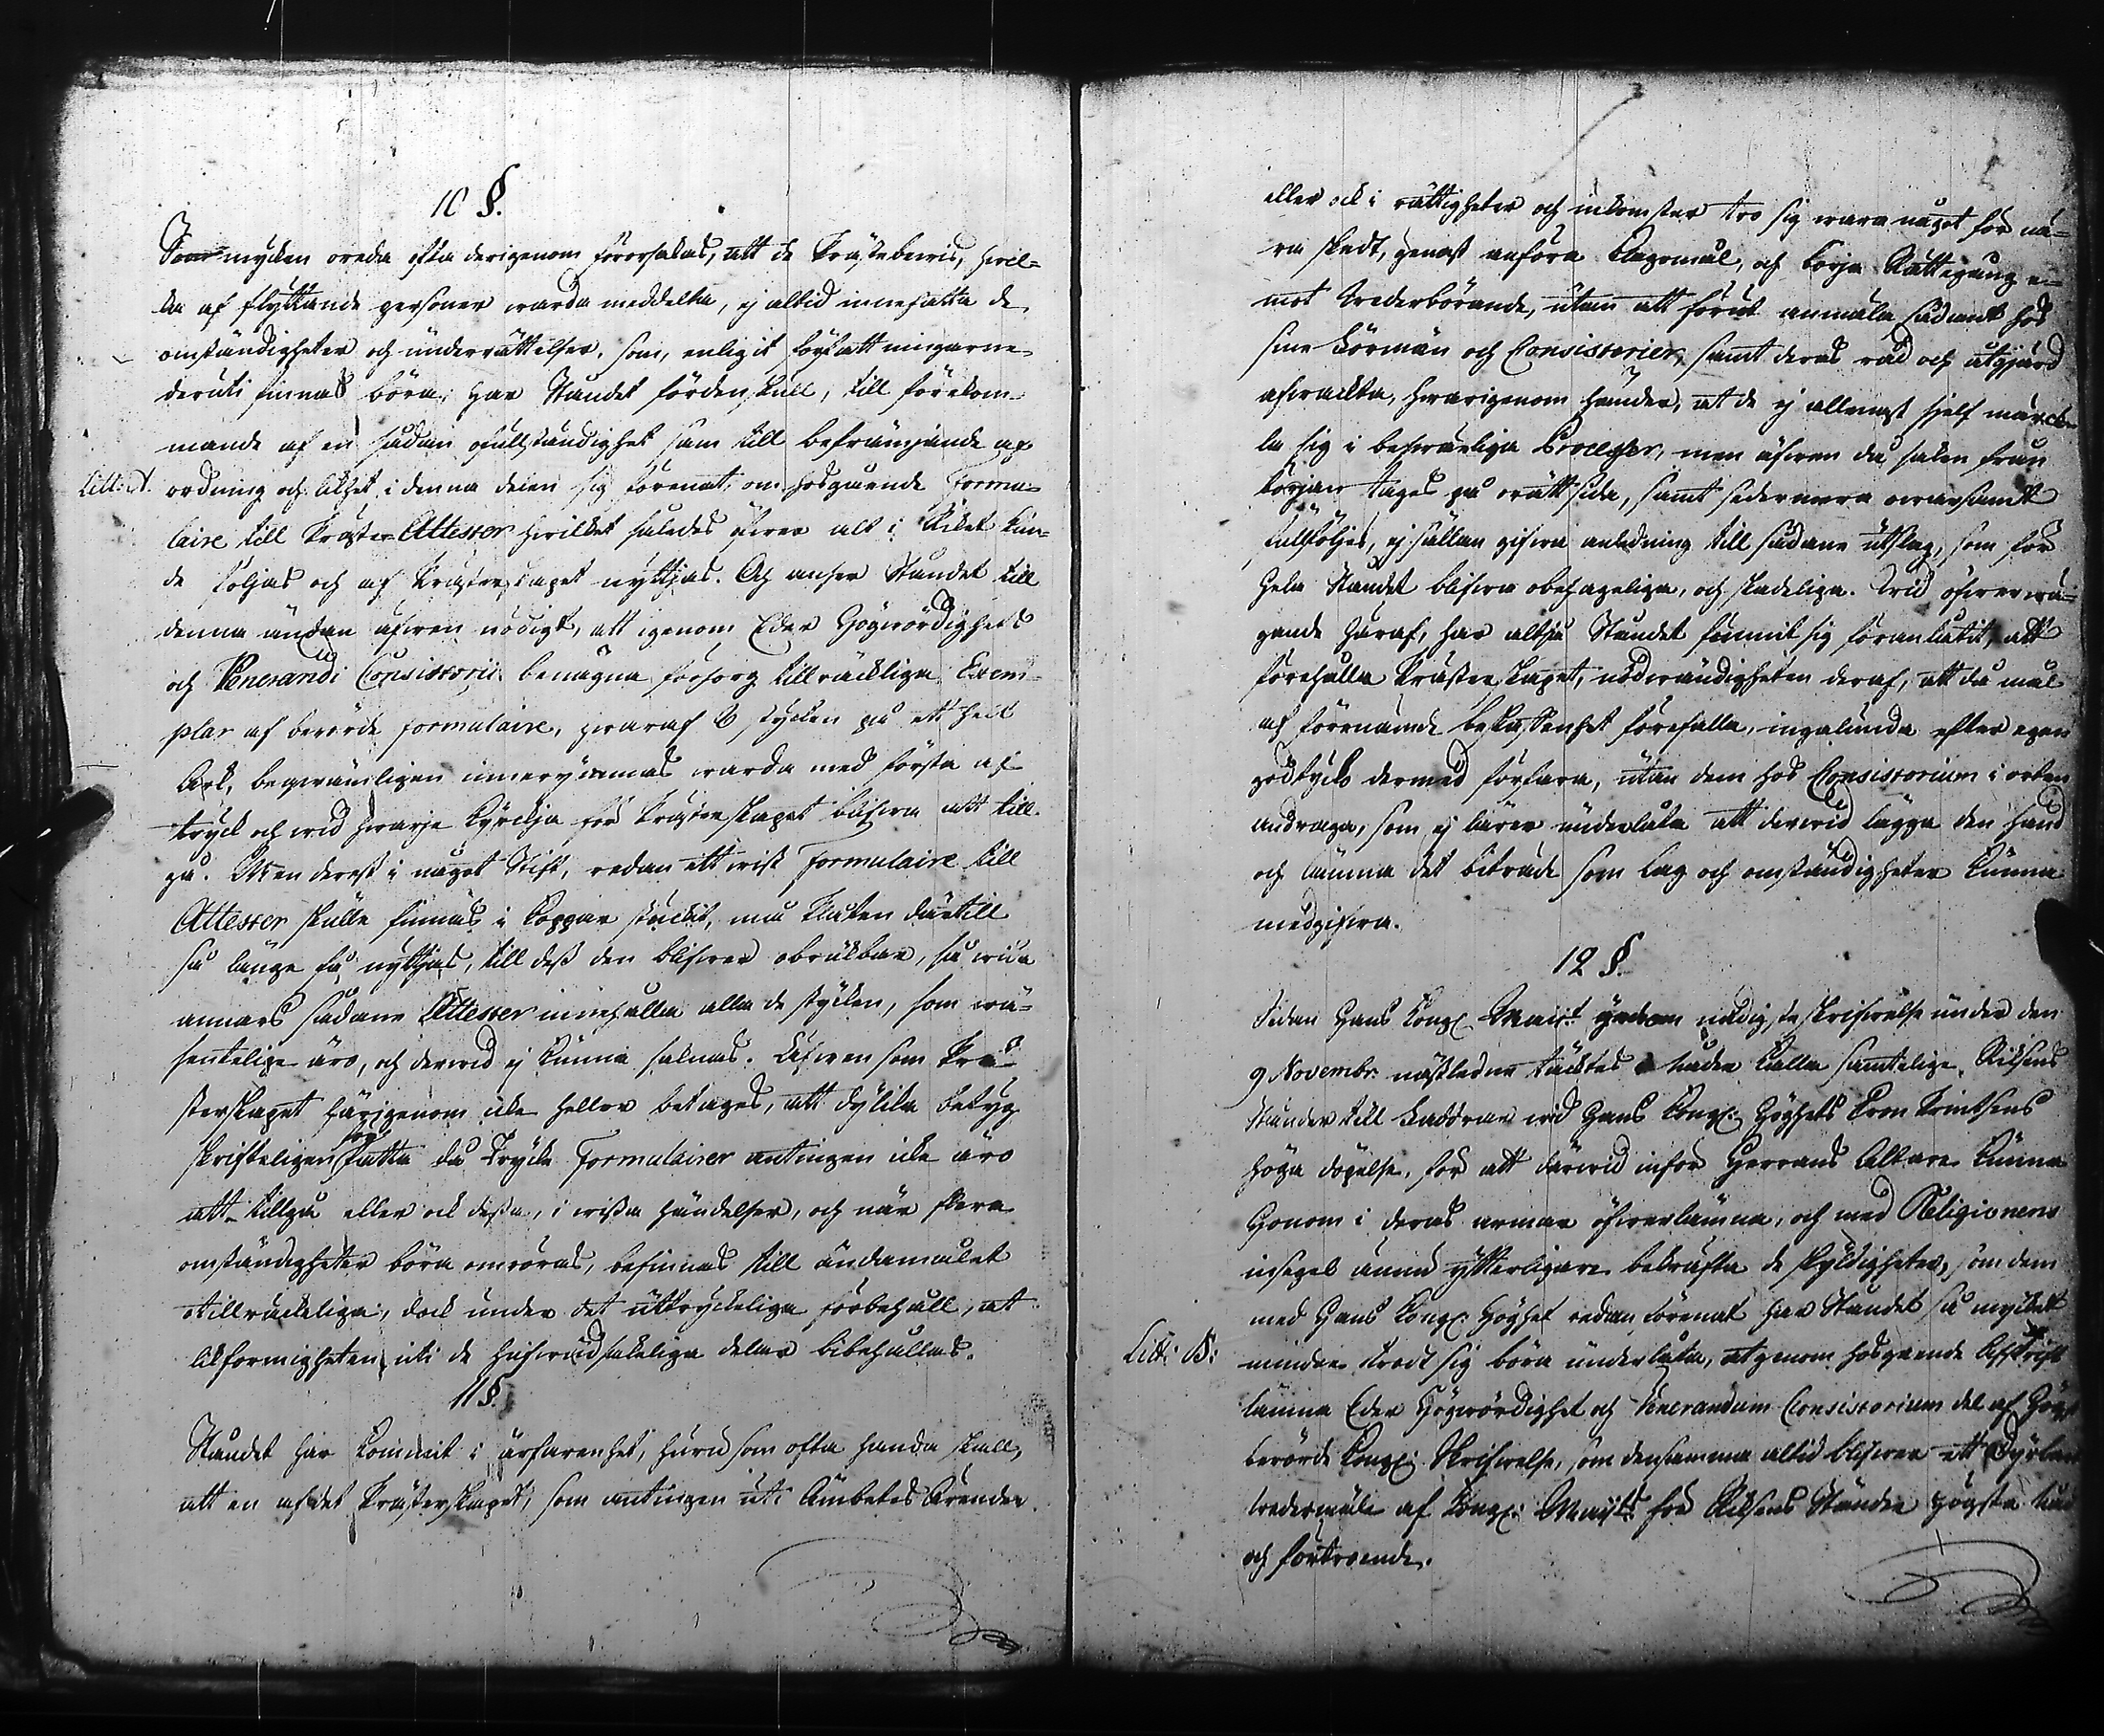 10 §.
Som mycken oreda ofta derigenom förorsakas, att de Prästebewis, hwil-
ka af flyttande personer warda meddelta, ej altid innefatta de
omständigheter och underrättelser, som, enligit författningarne
deruti finnas böra; har Ståndet fördenskull, till förekom-
mande af en sådan ofullständighet sam till befrämjande af
Litt: A. ordning och likhet i denna delen sig förenat om hosgående Formu-
laire till Präste-Attester hwilket således öfwer alt i Riket kun-
de följas och af Prästerskapet nyttjas. Och anser Ståndet till
denna ändan äfwen nödigt, att igenom Eder Högwördighets
och Venerandi Consistorii benägna försorg tillräckliga Exem-
plar af berörde formulaire, hwaraf 6 stycken på ett helt
Ark, beqwämligen inrymmas warda med första af
tryck och wid hwarje Kyrckja för Prästerskapet blifwa att till-
gå. Men derest i något Stift, redan ett wist Formulaire till
Attester skulle finnas i Koppar stuckit, må Platen därtill
så länge få nyttjas, till dess den blifwer obrukbar, så wida
annars sådane Attester innehålla alla de stycken, som wä-
sentelige äro, och derwid ej kunna saknas. Äfwen som Prä-
sterskapet härigenom icke heller betages, att dylika betyg
skrifteligen författa då Tryckte Formulairer antingen icke äro
att tillgå eller ock dessa, i wissa händelser, och när flera
omständigheter böra omröras, befinnas till ändamålet
otillräckeliga, dock under det uttryckeliga förbehåll, at
likformigheten uti de hufwudsakeliga delar bibehålles.
11 §.
Ståndet har kommit i ärfarenhet, huru som ofta hända skall,
att en af det Prästerskapet, som antingen uti Ämbetes Ärender
eller ock i rättigheter och inkomster tro sig wara något för nä-
ra skedt, genast anföra Klagomål, och börja Rättegång e-
mot Wederbörande, utan att förut anmäla sådant hos
sine Förmän och Consistorier, samt deras råd och åtgjärd
afwackta, hwarigenom händer, at de ej allenast sjelf inveck-
la sig i beswärliga Processer, men äfwen då saken från
början tages på orätt sida, samt sedermera owarsamt
fullföljes, ej sällan gifwa anledning till sådane utslag, som för
hela Ståndet blifwa obehageliga, och skadeliga. Wid öfwerwä-
gande häraf, har altså Ståndet funnit sig föranlåtit, att
förehålla Prästerskapet, nödwändigheten deraf, att då mål
af förenämde beskaffenhet förefalla, ingalunda efter egen
godtycke dermed förfara, utan dem hos Consistorium i orten
andraga, som ej lärer underlåta att derwid lägga den hand
och lämna det biträde som Lag och omständigheter kunna
medgifwa.
12 §.
Sedan Hans Kongl. Maij:t genom nådigste skrifwelse under den
9 Novembr. nästledne täcktes i nåder kalla samtelige Riksens
Ständer till Faddrar wid Hans Kongl: Höghets Kron Printsens
höga döpelse, för att därwid inför Herrans Altare kunna
Honom i deras armar öfwerlämna, och med Religionens
insegel ännu ytterligare bekräfta de skyldigheter, som dem
med Hans Kongl: Höghet redan förenat har Ståndet så myckit
Litt: B: mindre trodt sig böra underlåta, at genom hosgående Afskrift
lämna Eder Högwördighet och Venerandum Consistorium del af Högst
berörde Kongl: Skrifwelse, som densamma altid blifwer ett Dyrbart
wedermäle af Kongl: Maij:ts för Riksens Ständer högsta nåd
och förtroende.